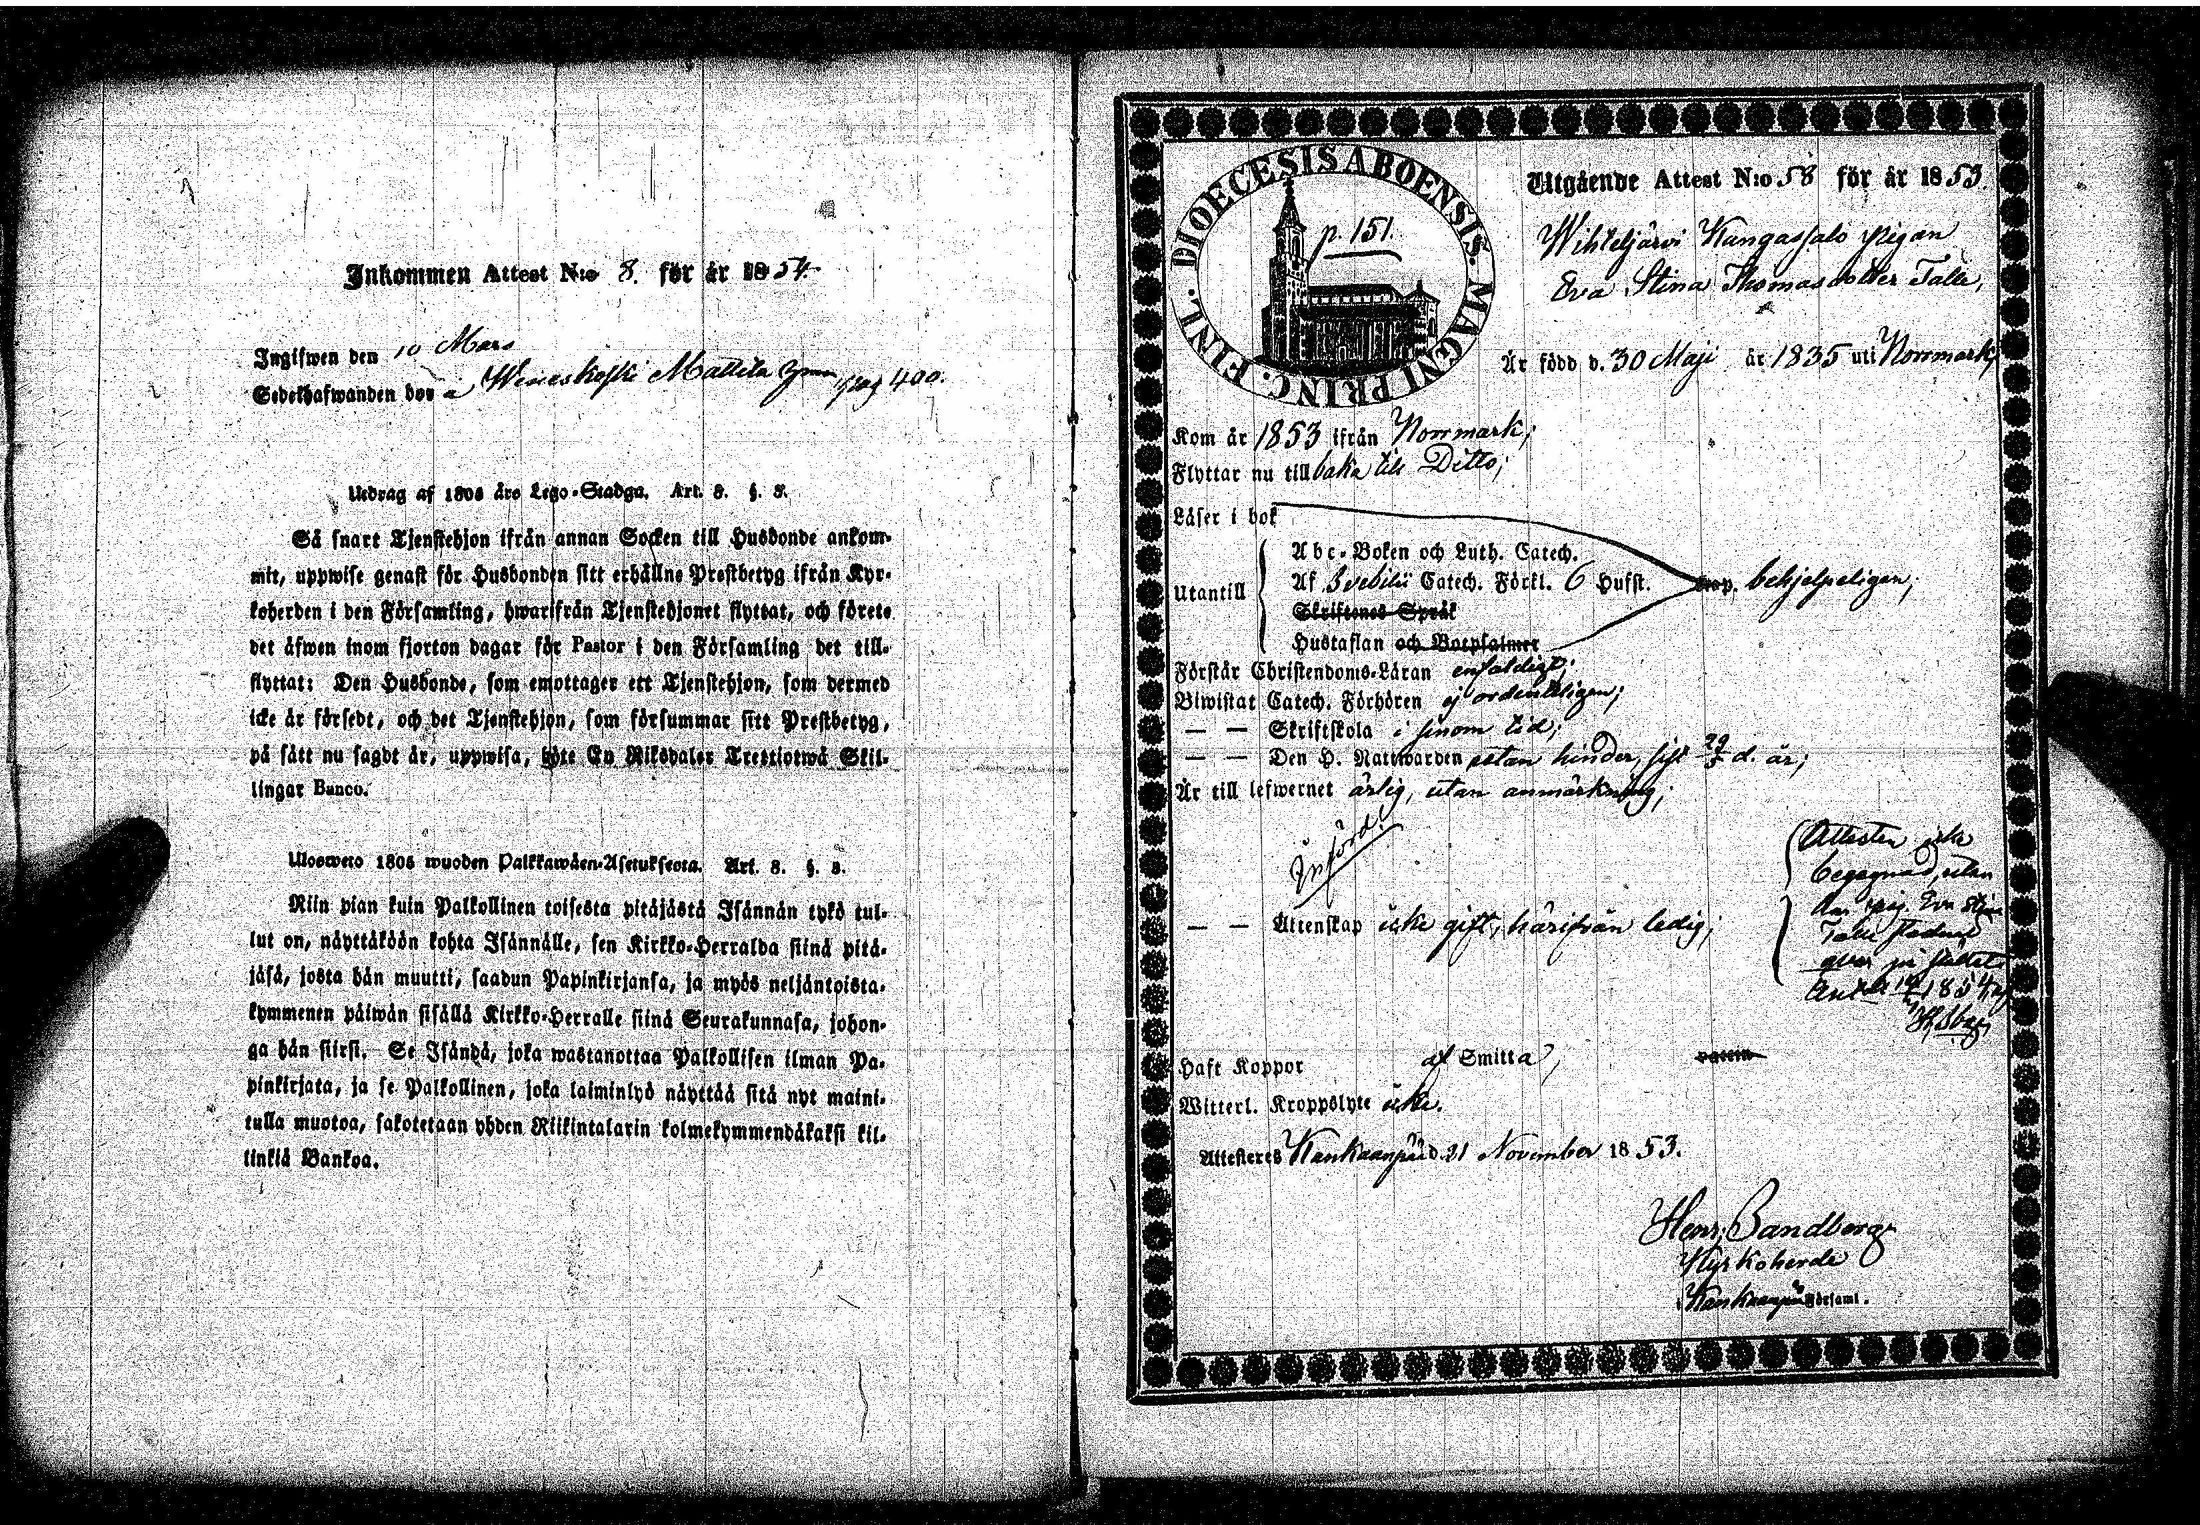 Inkommen Attest N:o 8. för år 1854.
Ingifwen den 10 Mars
Sedelhafwanden bor i Wesieskoski Mattila pag 400.
Utdrag af 1805 års Lego-Stadga. Art. 8. §. 8.
Så snart Tjenstehjon ifrån annan Socken till Husbonde ankom-
mit, uppwise genast för Husbonden sitt erhållne Prestbetyg ifrån Kyr-
koherden i den Församling, hwarifrån Tjenstehjonet flyttat, och förete
det äfwen inom fjorton dagar för Pastor i den Församling det till-
flyttat: Den Husbonde, som emottager ett Tjenstehjon, som dermed
icke är försedt, och det Tjenstehjon, som försummar sitt Prestbetyg,
på sätt nu sagdt är, uppwisa, böte En Riksdaler Trettiotwå Skil-
lingar Banco.
Ulosweto 1805 wuoden Palkkawäen-Asetuksesta. Art. 8. §. 8.
Niin pian kuin Palkollinen toisesta pitäjästä Isännän tykö tul-
lut on, näyttäköön kohta Isännälle, sen Kirkko-Herralda siinä pitä-
jäsä, josta hän muutti, saadun Papinkirjansa, ja myös neljäntoista-
kymmenen päiwän sisällä Kirkko-Herralle siinä Seurakunnasa, johon-
ga hän siirsi. Se Isändä, joka wastanottaa Palkollisen ilman Pa-
pinkirjata, ja se Palkollinen, joka laiminlyö näyttää sitä nyt maini-
tulla muotoa, sakotetaan yhden Riikintalarin kolmekymmendäkaksi kil-
linkiä Bankoa.
DIOECESIS ABOENSIS. MAGNI PRINC. FINL.
p. 151.
Utgående Attest N:o 58 för år 1853.
Wihteljärvi Kangassalo pigan
Eva Stina Thomasdotter Talle,
Är född d. 30 Maji år 1835 uti Norrmark,
Kom år 1853 ifrån Norrmark;
Flyttar nu tillbaka till Ditto;
Läser i bok
Abc-Boken och Luth. Catech.
Utantill Af Svebilii Catech. Förkl. 6 Hufst. hop. behjelpeligen;
Skriftenes Språk
Hustaflan och Botpsalmer
Förstår Christendoms-Läran enfaldigt;
Biwistat Catech. Förhören ej ordentligen;
— — Skriftskola i sinom tid;
— — Den H. Nattwarden utan hinder, sist 29/5 d. år;
Är till lefwernet ärlig, utan anmärkning;
Införd!
Attesten icke
begagnad, utan
har pig. Eva Stina
Talle stadnat
qvar på stället
1854
— — Äktenskap icke gift, härifrån ledig;
Haft Koppor af Smitta,
Witterl. Kroppslyte icke.
Attesteres Kankaanpää d. 21 November 1853.
Henr. Sandberg
Kyrkoherde
Kankaanpää Församl.